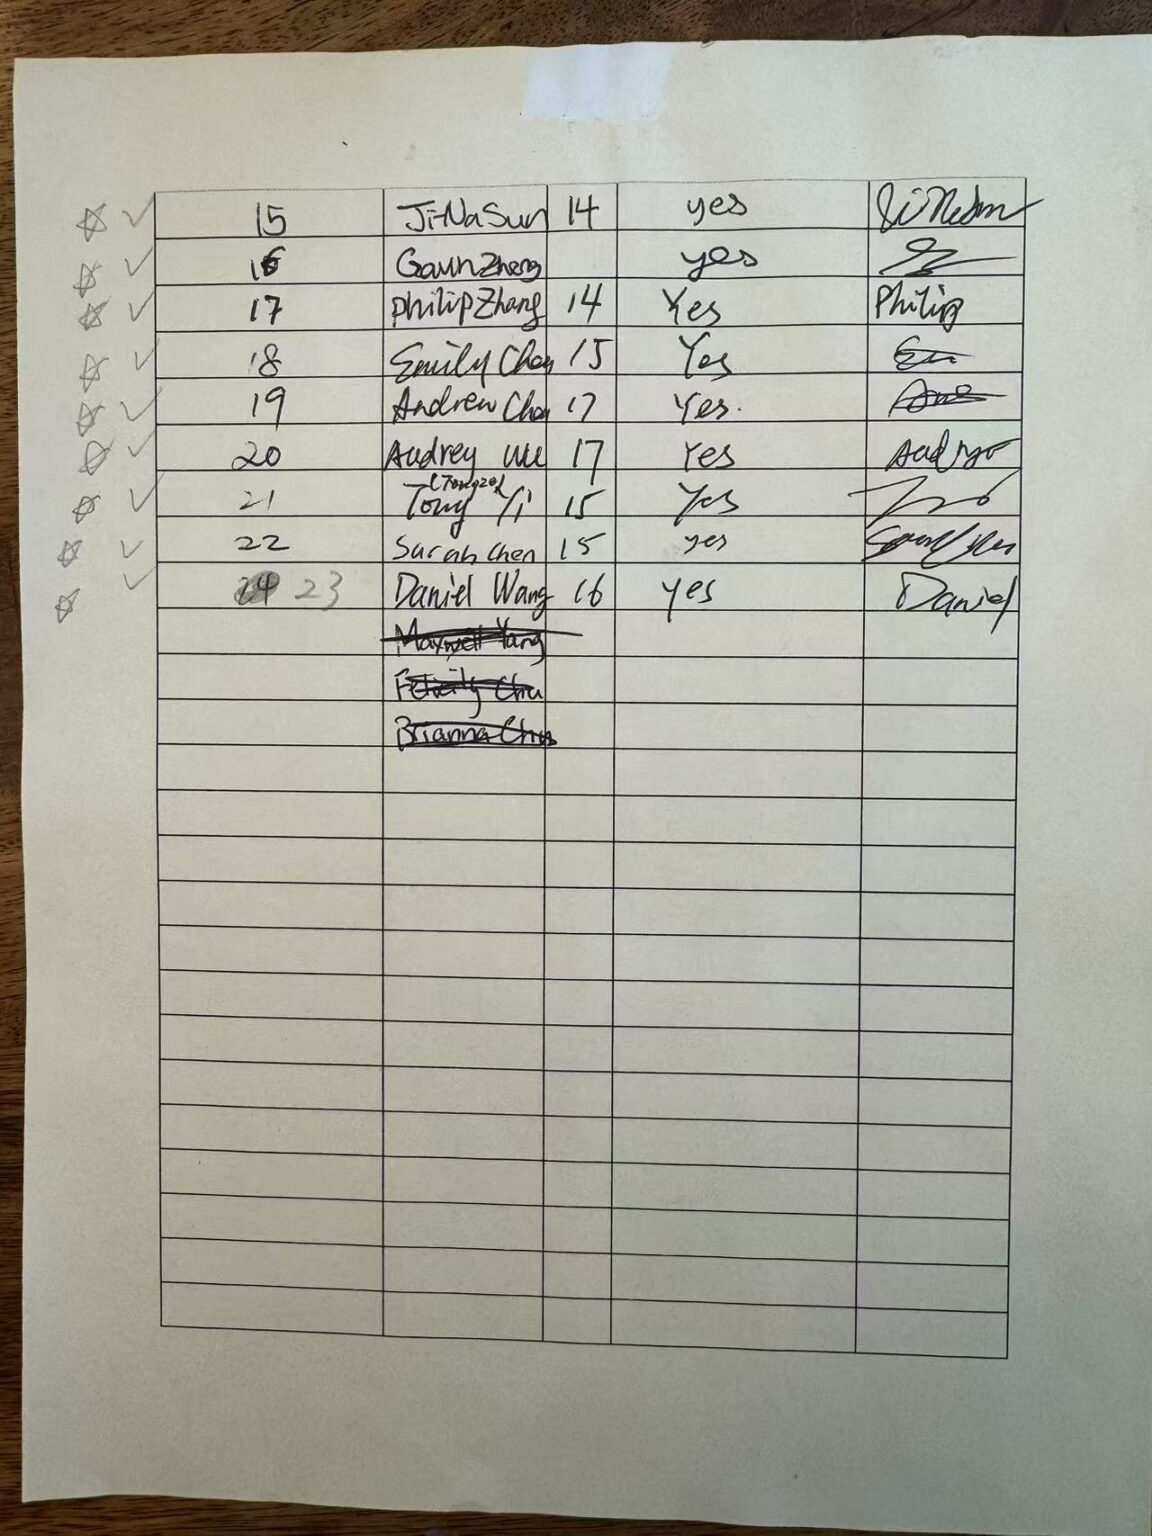 15 Ji-Na Sun 14 yes
16 Gavin Zheng yes
17 Philip Zhang 14 Yes Philip
18 Emily Chen 15 Yes
19 Andrew Chen 17 Yes.
20 Audrey Wu 17 Yes
21 Tony (Tongze) Yi 15 Yes
22 Sarah Chen 15 yes
23 Daniel Wang 16 yes Daniel
Maxwell Yang
Felicity Chu
Brianna